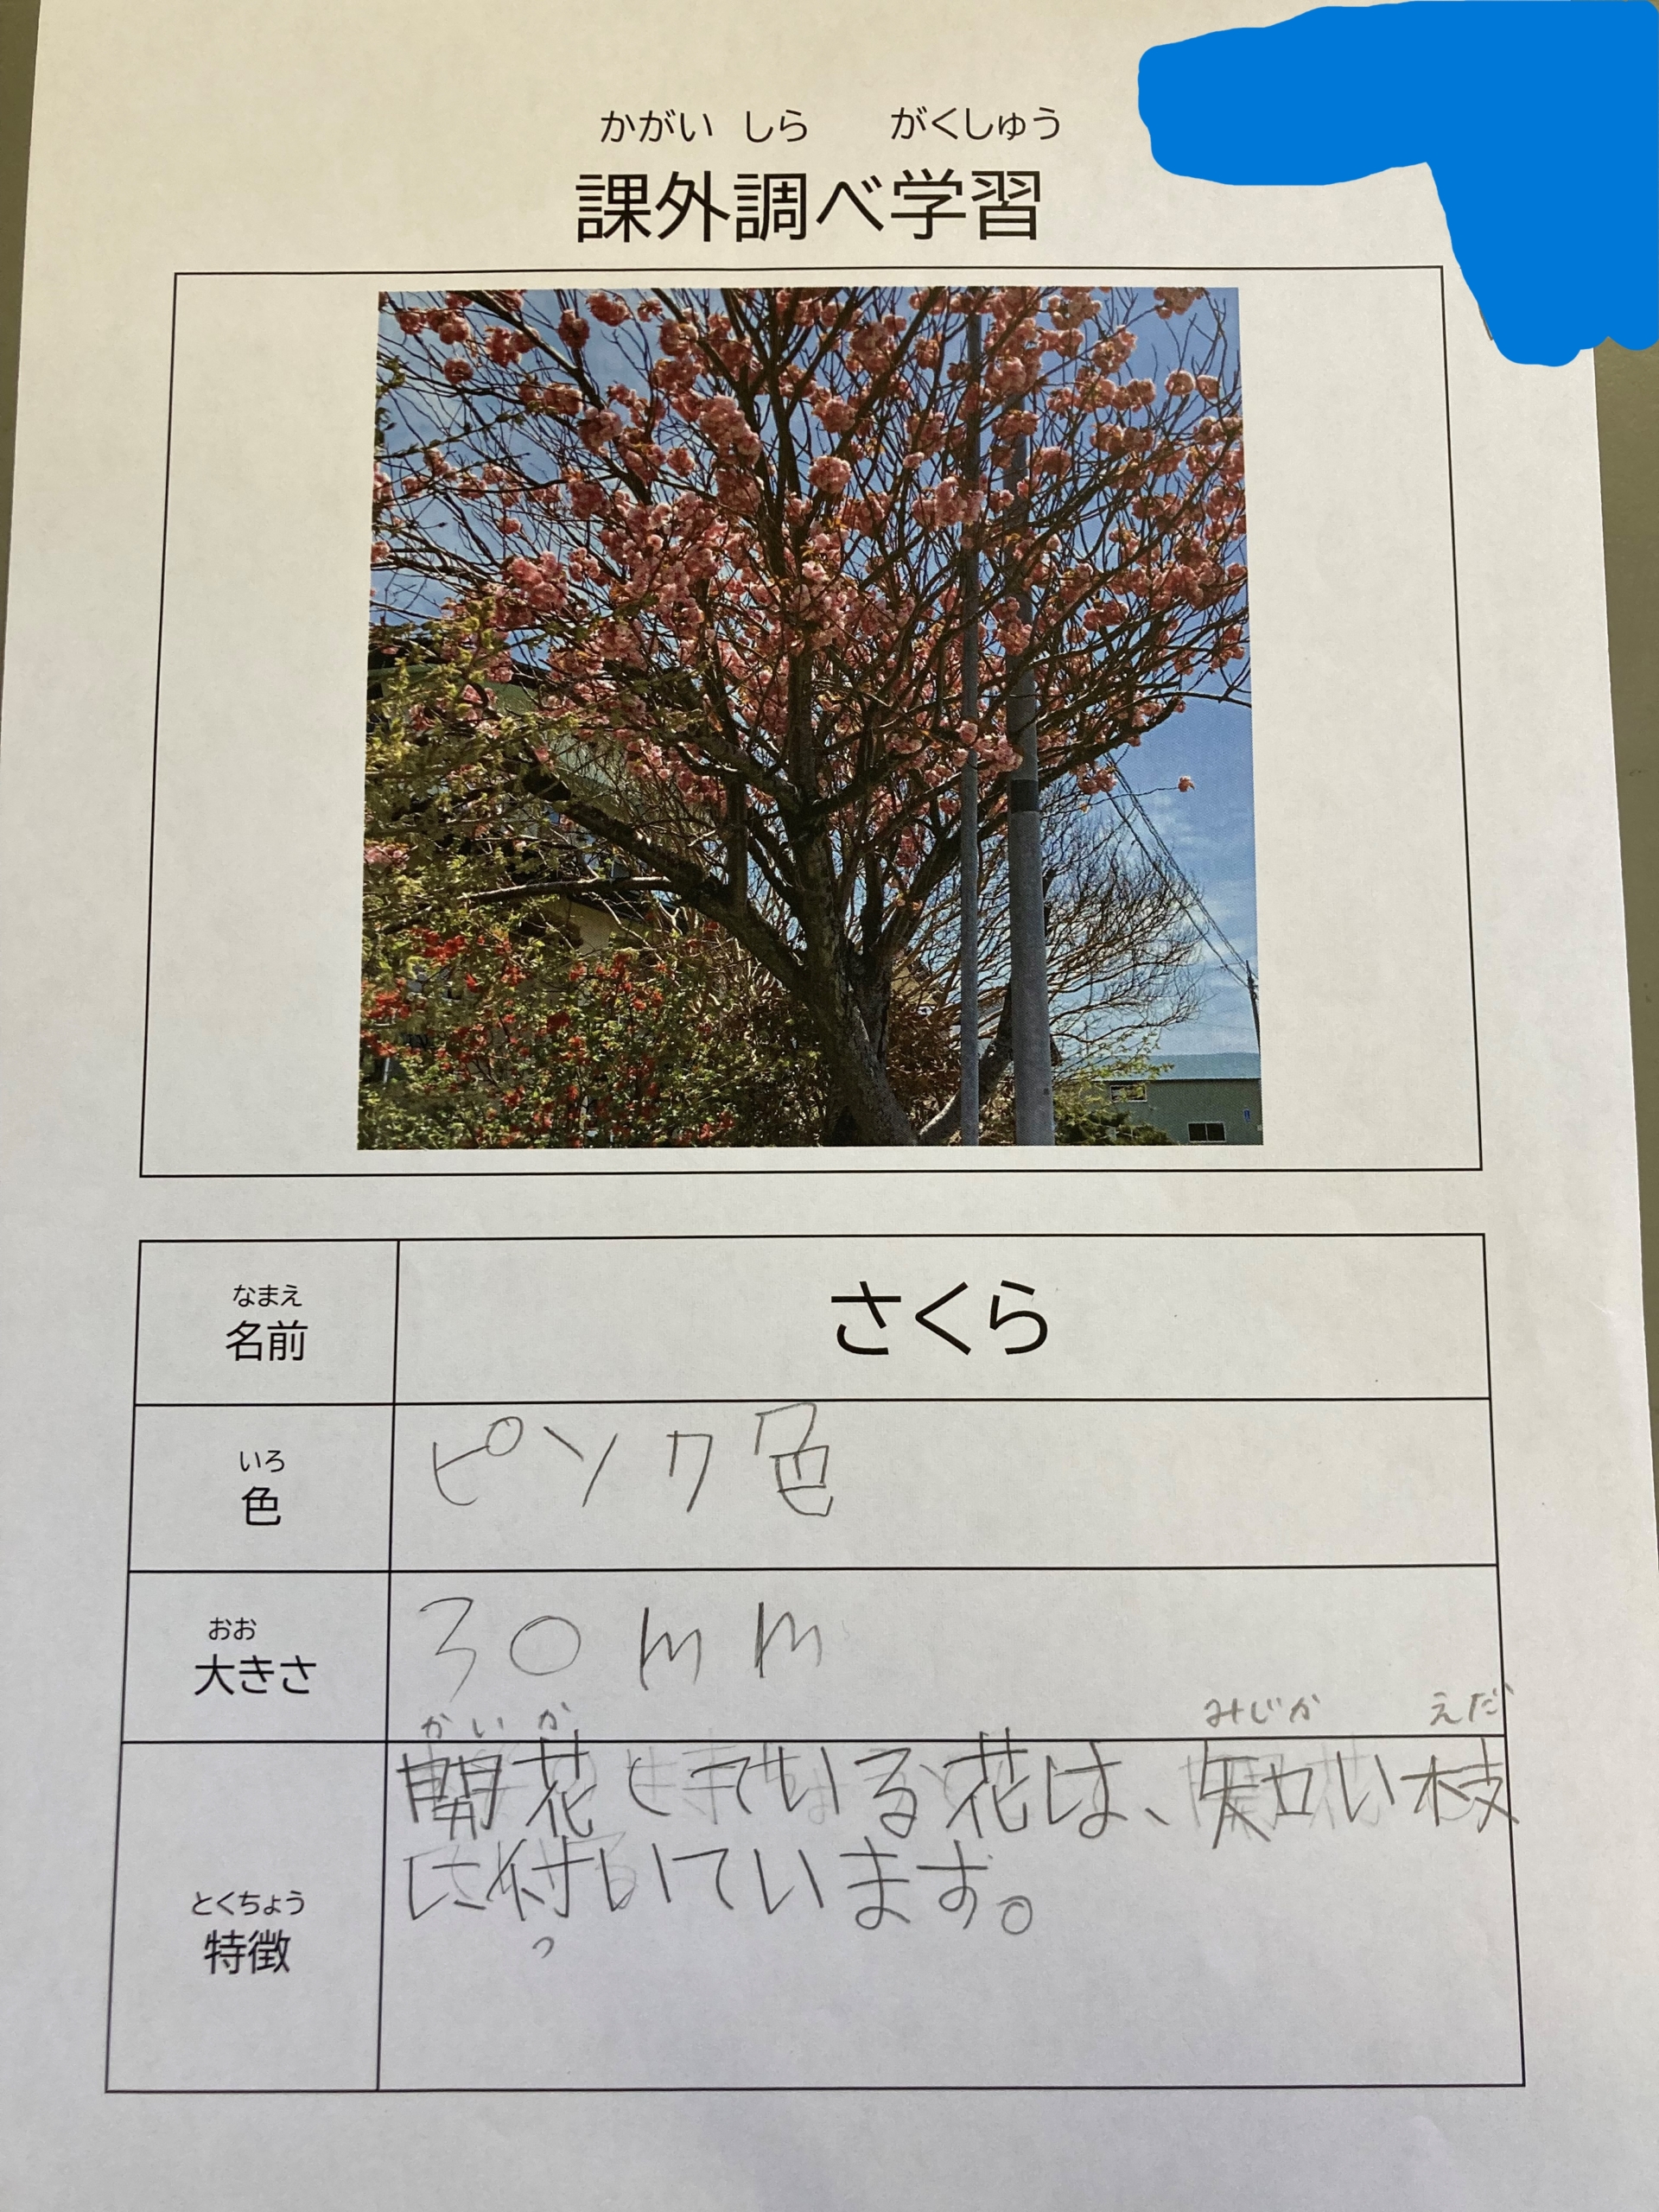 かがい しら がくしゅう
課外調べ学習
なまえ
名前
さくら
いろ
色
ピンク色
おお
大きさ
30mm
とくちょう
特徴
かいか みじか えだ
開花している花は、短い枝
に付いています。
つ